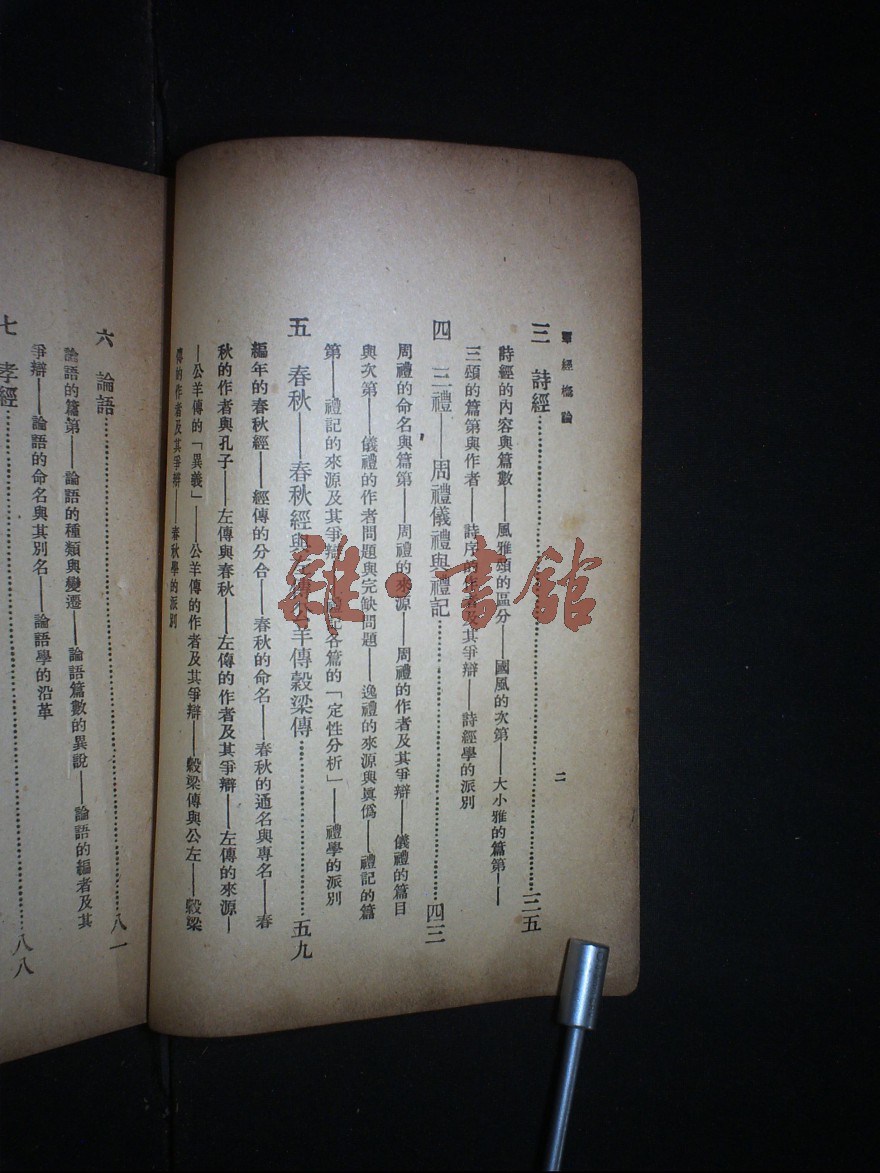 羣經概論
二
三 詩經……三五
詩經的內容與篇數——風雅頌的區分——國風的次第——大小雅的篇第——
三頌的篇第與作者——詩序的作者及其爭辯——詩經學的派別
四 三禮——周禮儀禮與禮記……四三
周禮的命名與篇第——周禮的來源——周禮的作者及其爭辯——儀禮的篇目
與次第——儀禮的作者問題與完缺問題——逸禮的來源與眞僞——禮記的篇
第——禮記的來源及其爭辯——各篇的「定性分析」——禮學的派別
五 春秋——春秋經與左傳公羊傳穀梁傳……五九
編年的春秋經——經傳的分合——春秋的命名——春秋的通名與專名——春
秋的作者與孔子——左傳與春秋——左傳的作者及其爭辯——左傳的來源—
—公羊傳的「異義」——公羊傳的作者及其爭辯——穀梁傳與公左——穀梁
傳的作者及其爭辯——春秋學的派別
六 論語……八一
論語的篇第——論語的種類與變遷——論語篇數的異說——論語的編者及其
爭辯——論語的命名與其別名——論語學的沿革
七 孝經……八八
雜·書館